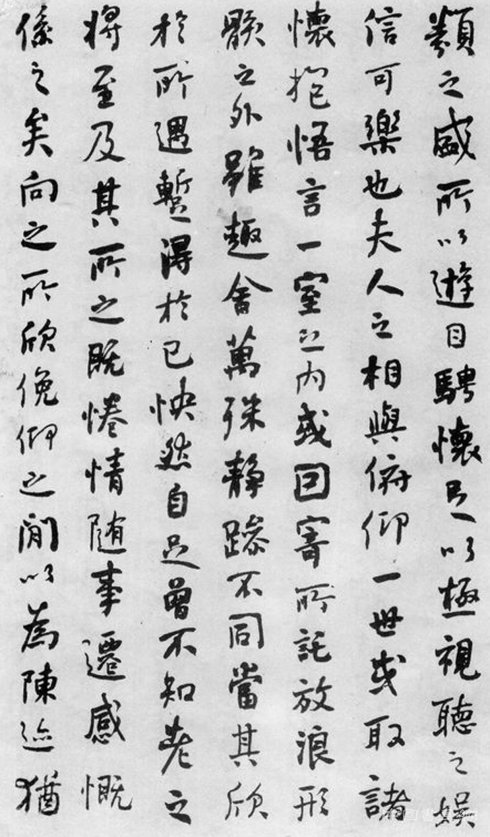 類之盛所以遊目騁懷足以極視聽之娛
信可樂也夫人之相與俯仰一世或取諸
懷抱悟言一室之內或因寄所託放浪形
骸之外雖趣舍萬殊靜躁不同當其欣
於所遇蹔得於己怏然自足曾不知老之
將至及其所之既惓情随事遷感慨
係之矣向之所欣俛仰之間以為陳迹猶